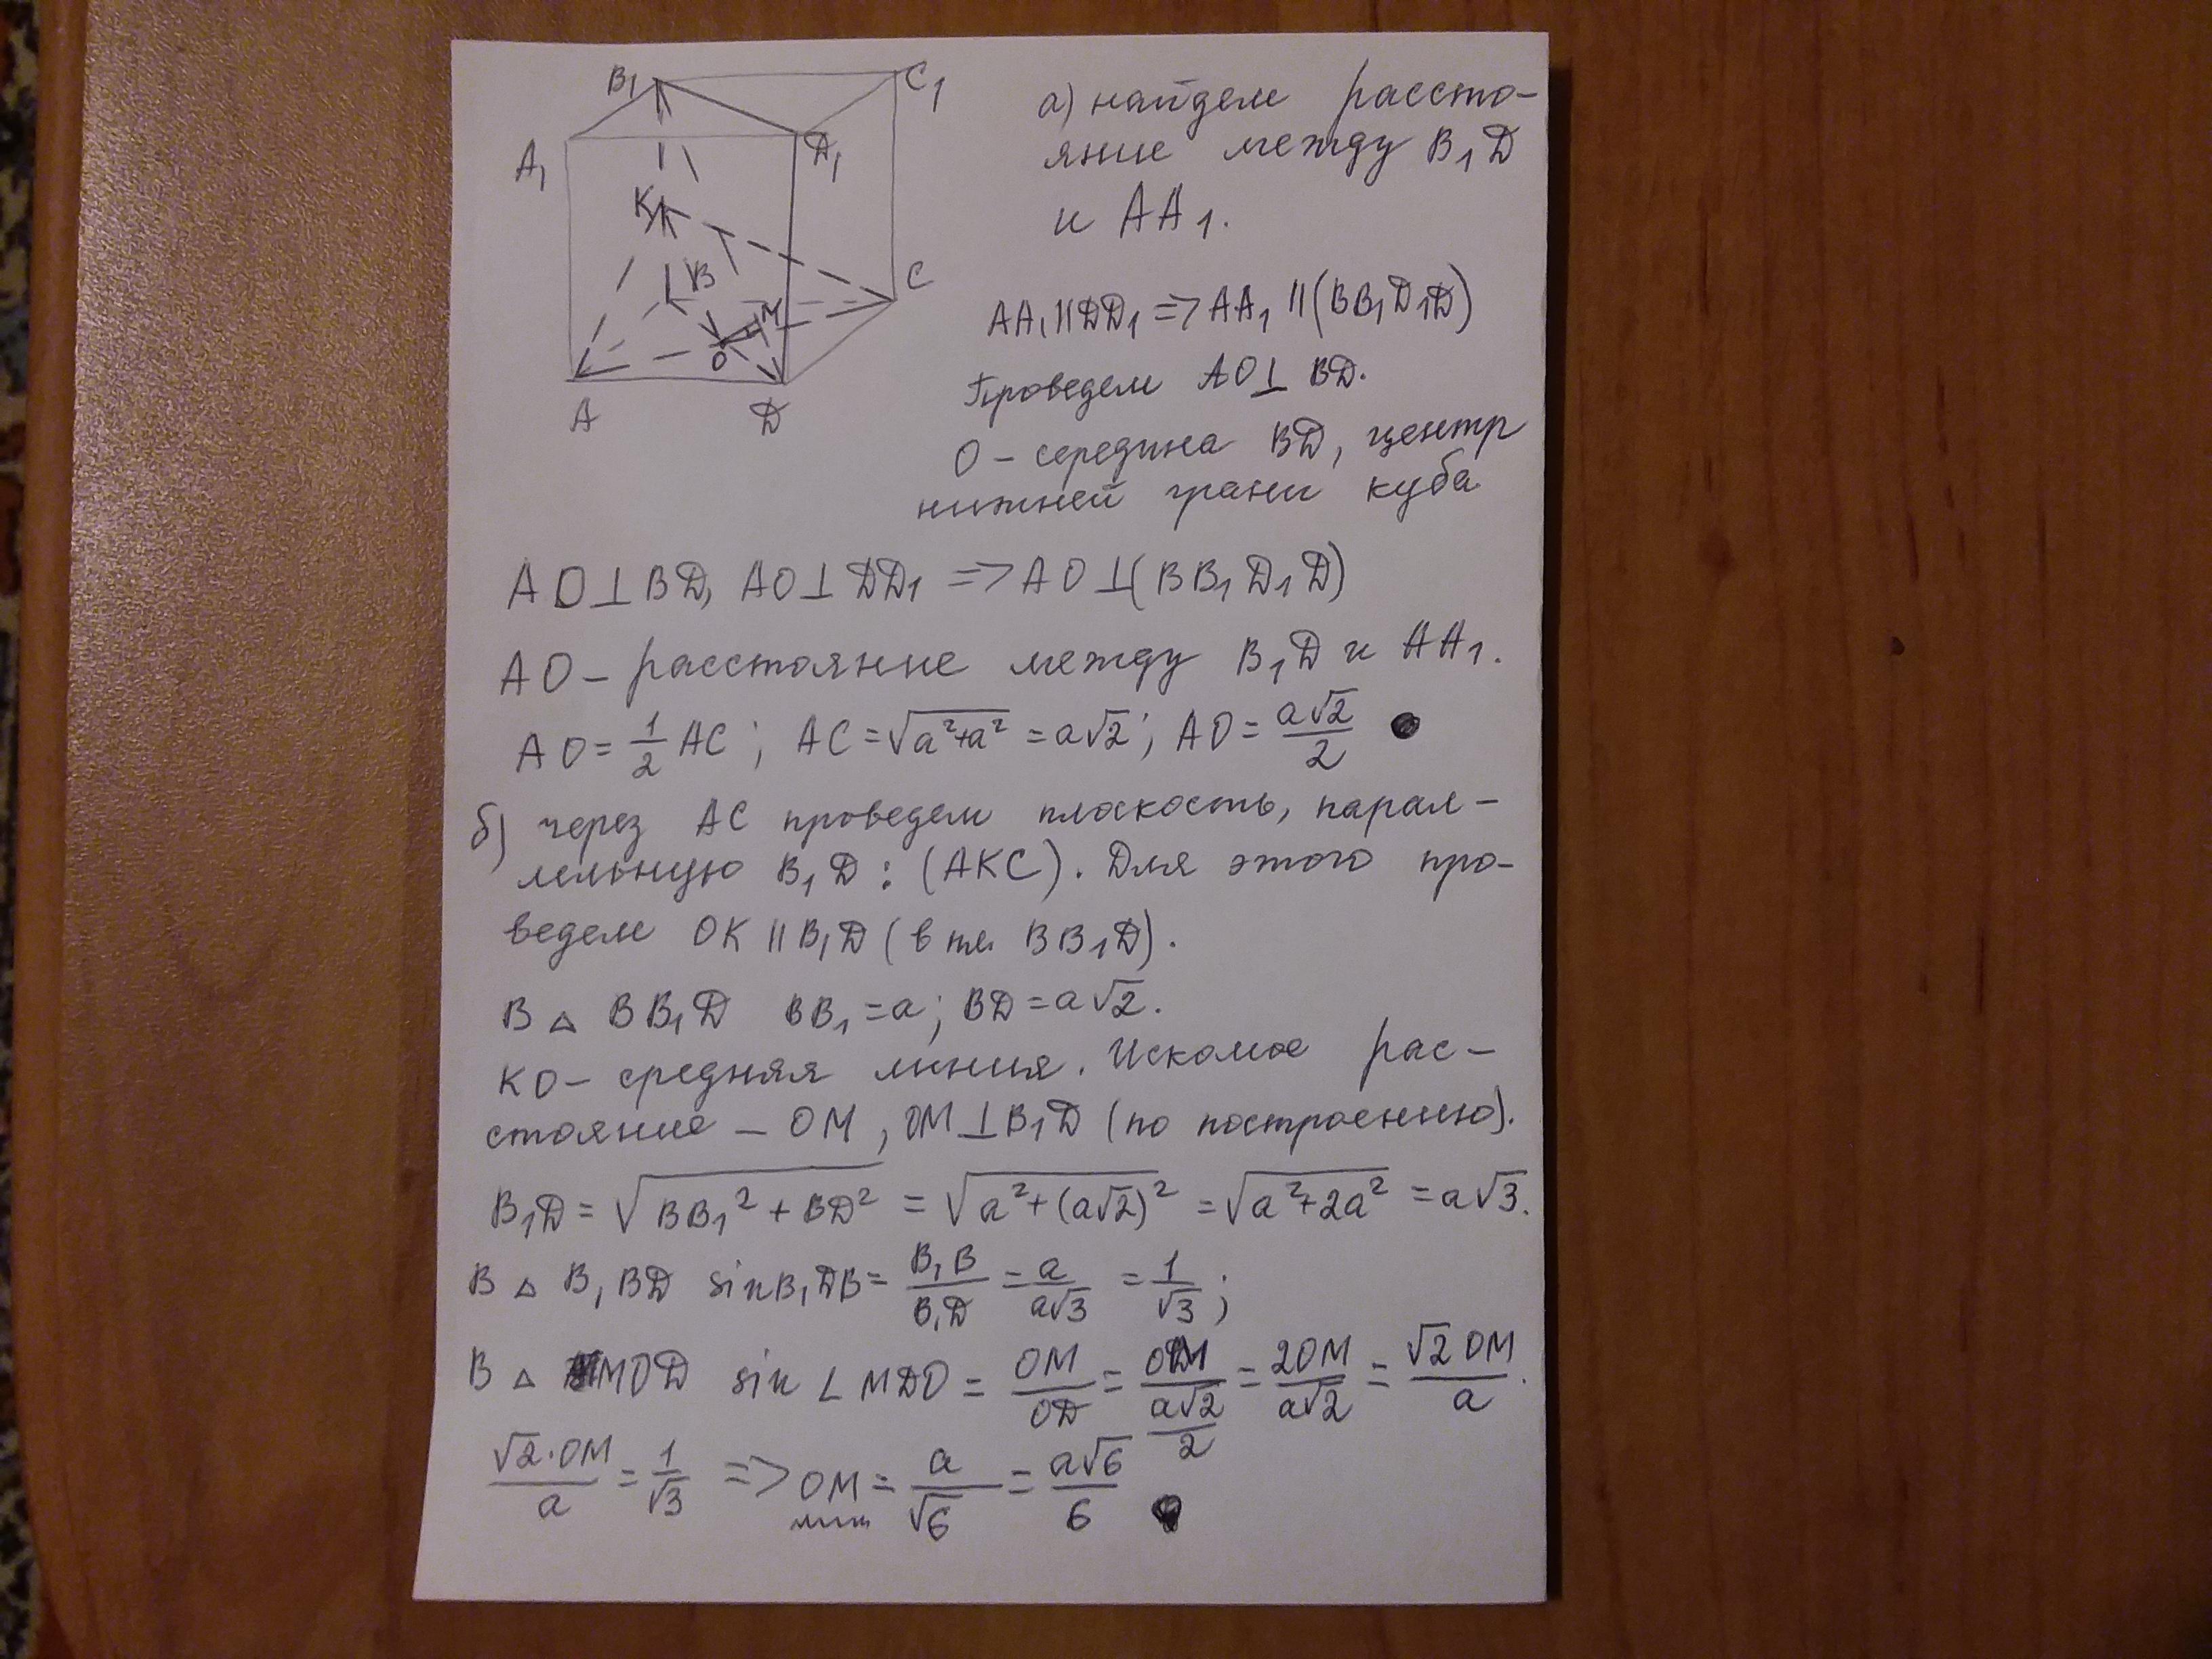 B₁ C₁
A₁ D₁
K
B C
M
O
A D
а) найдем рассто-
яние между B₁D
и AA₁.
AA₁ || DD₁ => AA₁ || (BB₁D₁D)
Проведем AO ⊥ BD.
O – середина BD, центр
нижней грани куба
AO ⊥ BD, AO ⊥ DD₁ => AO ⊥ (BB₁D₁D)
AO – расстояние между B₁D и AA₁.
AO = 1/2 AC ; AC = √(a²+a²) = a√2 ; AO = a√2/2
б) через AC проведем плоскость, парал-
лельную B₁D : (AKC). Для этого про-
ведем OK || B₁D (в пл. BB₁D).
В △ BB₁D BB₁ = a ; BD = a√2.
KO – средняя линия. Искомое рас-
стояние – OM, OM ⊥ B₁D (по построению).
B₁D = √(BB₁² + BD²) = √(a² + (a√2)²) = √(a² + 2a²) = a√3.
В △ B₁BD sin B₁DB = B₁B/B₁D = a/a√3 = 1/√3 ;
В △ MOD sin ∠ MDO = OM/OD = OM/(a√2/2) = 2OM/a√2 = √2 OM/a.
√2·OM/a = 1/√3 => OM = a/√6 = a√6/6